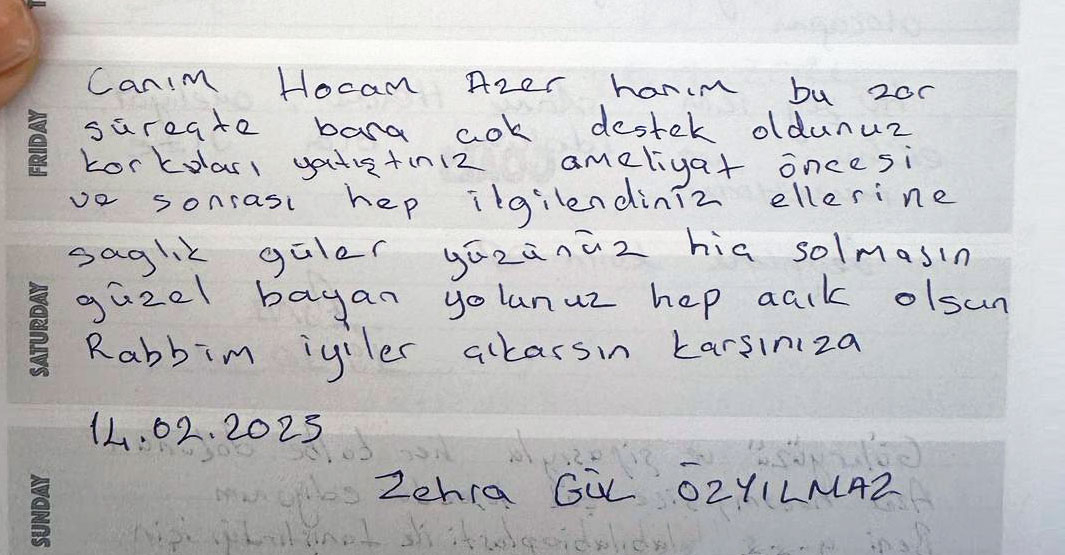 FRIDAY
Canım Hocam Azer hanım bu zor
süreçte bana çok destek oldunuz
korkuları yatıştınız ameliyat öncesi
ve sonrası hep ilgilendiniz ellerine
saglık güler yüzünüz hiç solmasın
SATURDAY
güzel bayan yolunuz hep açık olsun
Rabbim iyiler çıkarsın karşınıza
14.02.2023
SUNDAY
Zehra GÜL ÖZYILMAZ